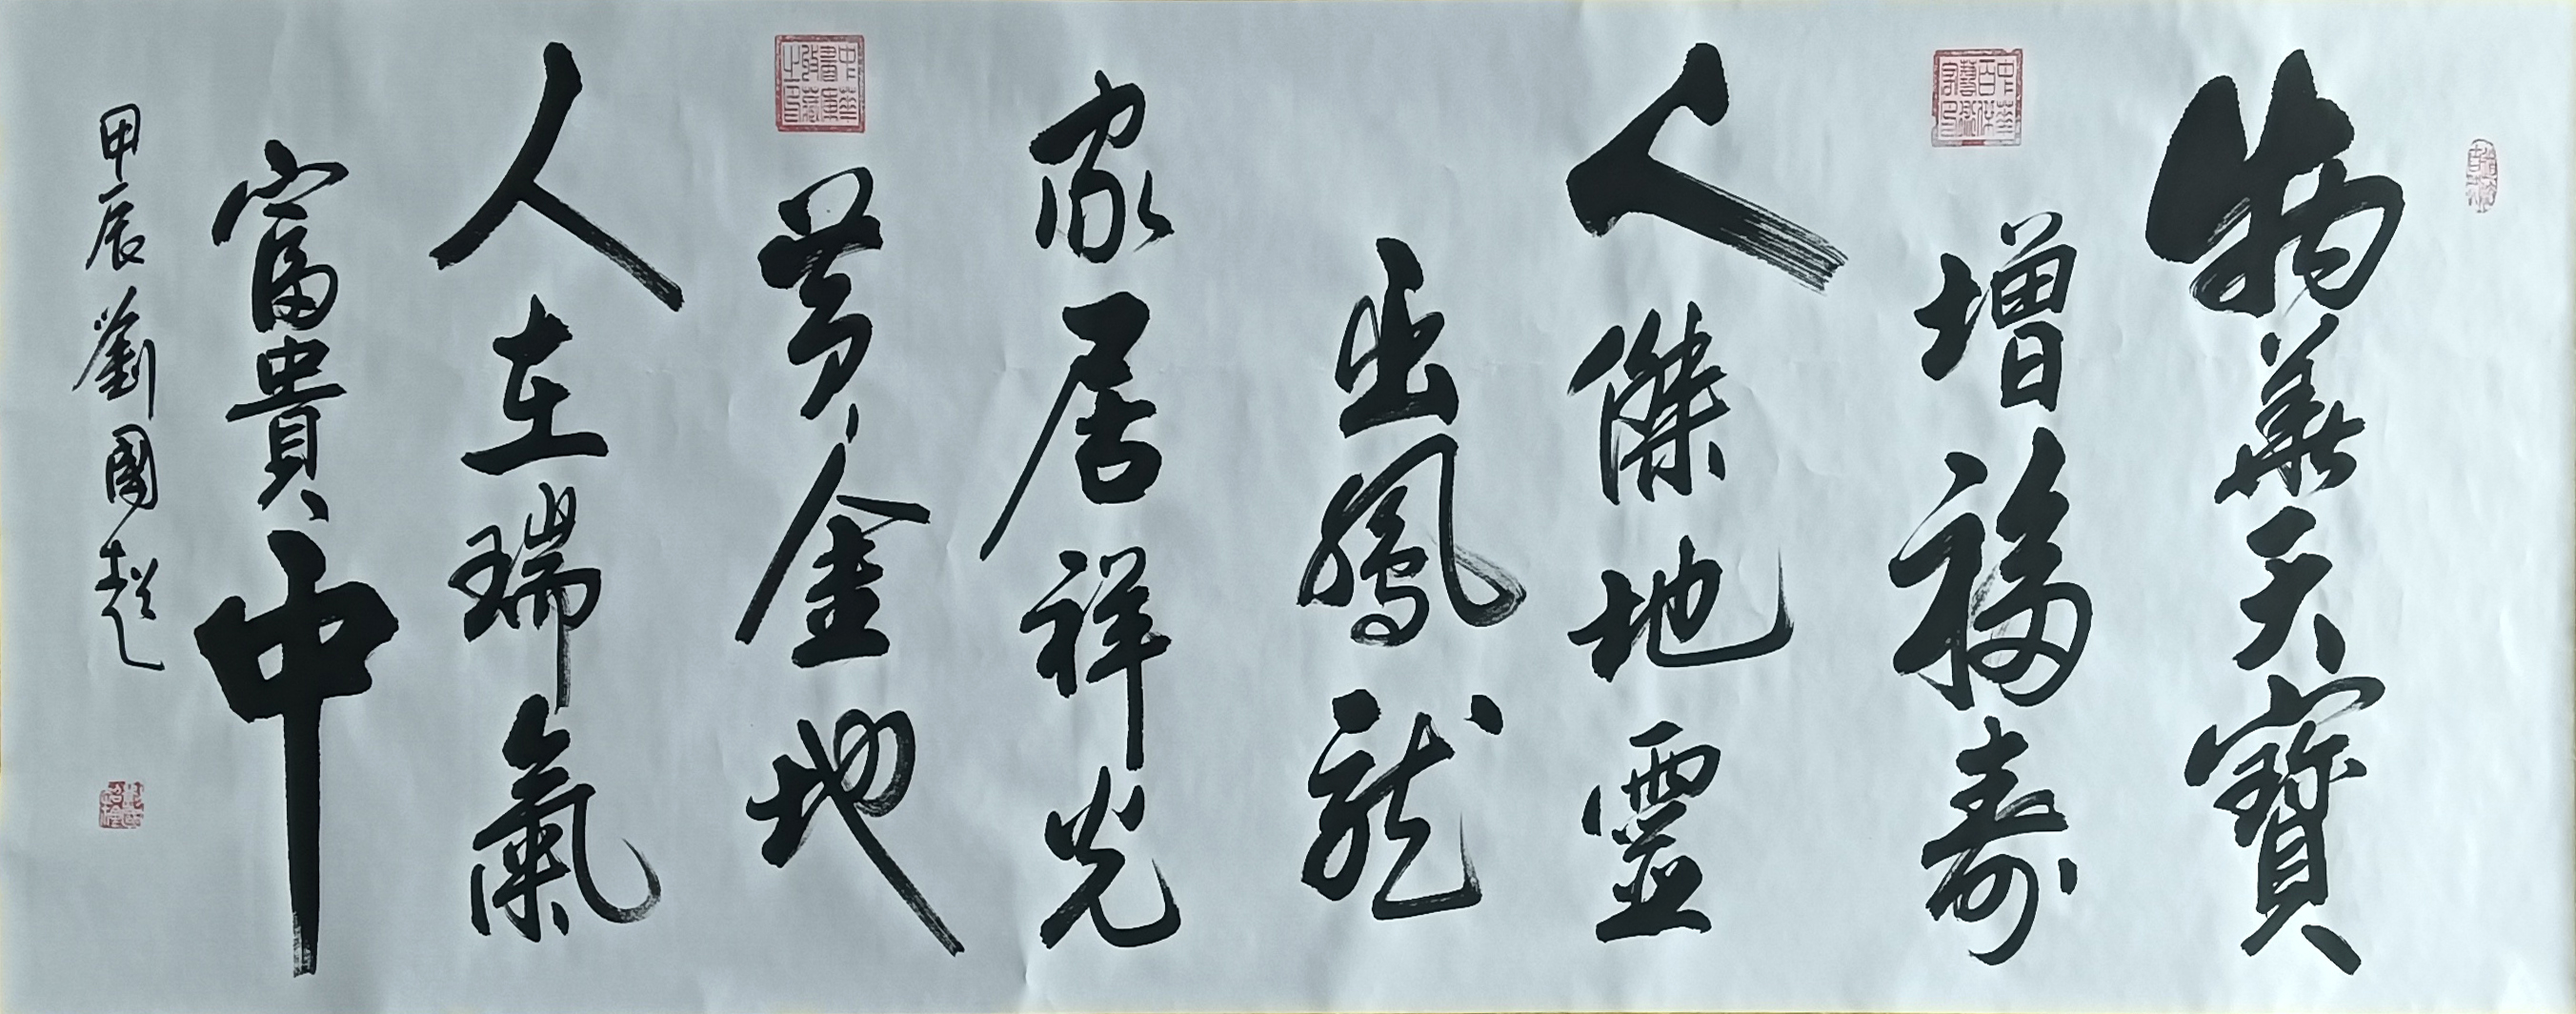 物華天寶
增福壽
人傑地靈
出鳳龍
家居祥光
黄金地
人在瑞氣
富貴中
甲辰劉國超